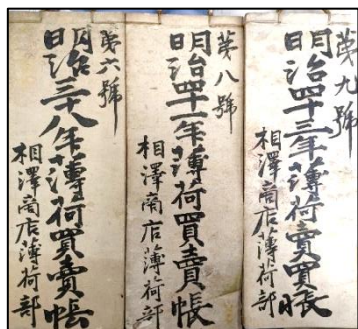 第九號
明治四十三年薄荷賣買帳
相澤商店薄荷部
第八號
明治四十一年薄荷買賣帳
相澤商店薄荷部
第六號
明治三十八年薄荷買賣帳
相澤商店薄荷部